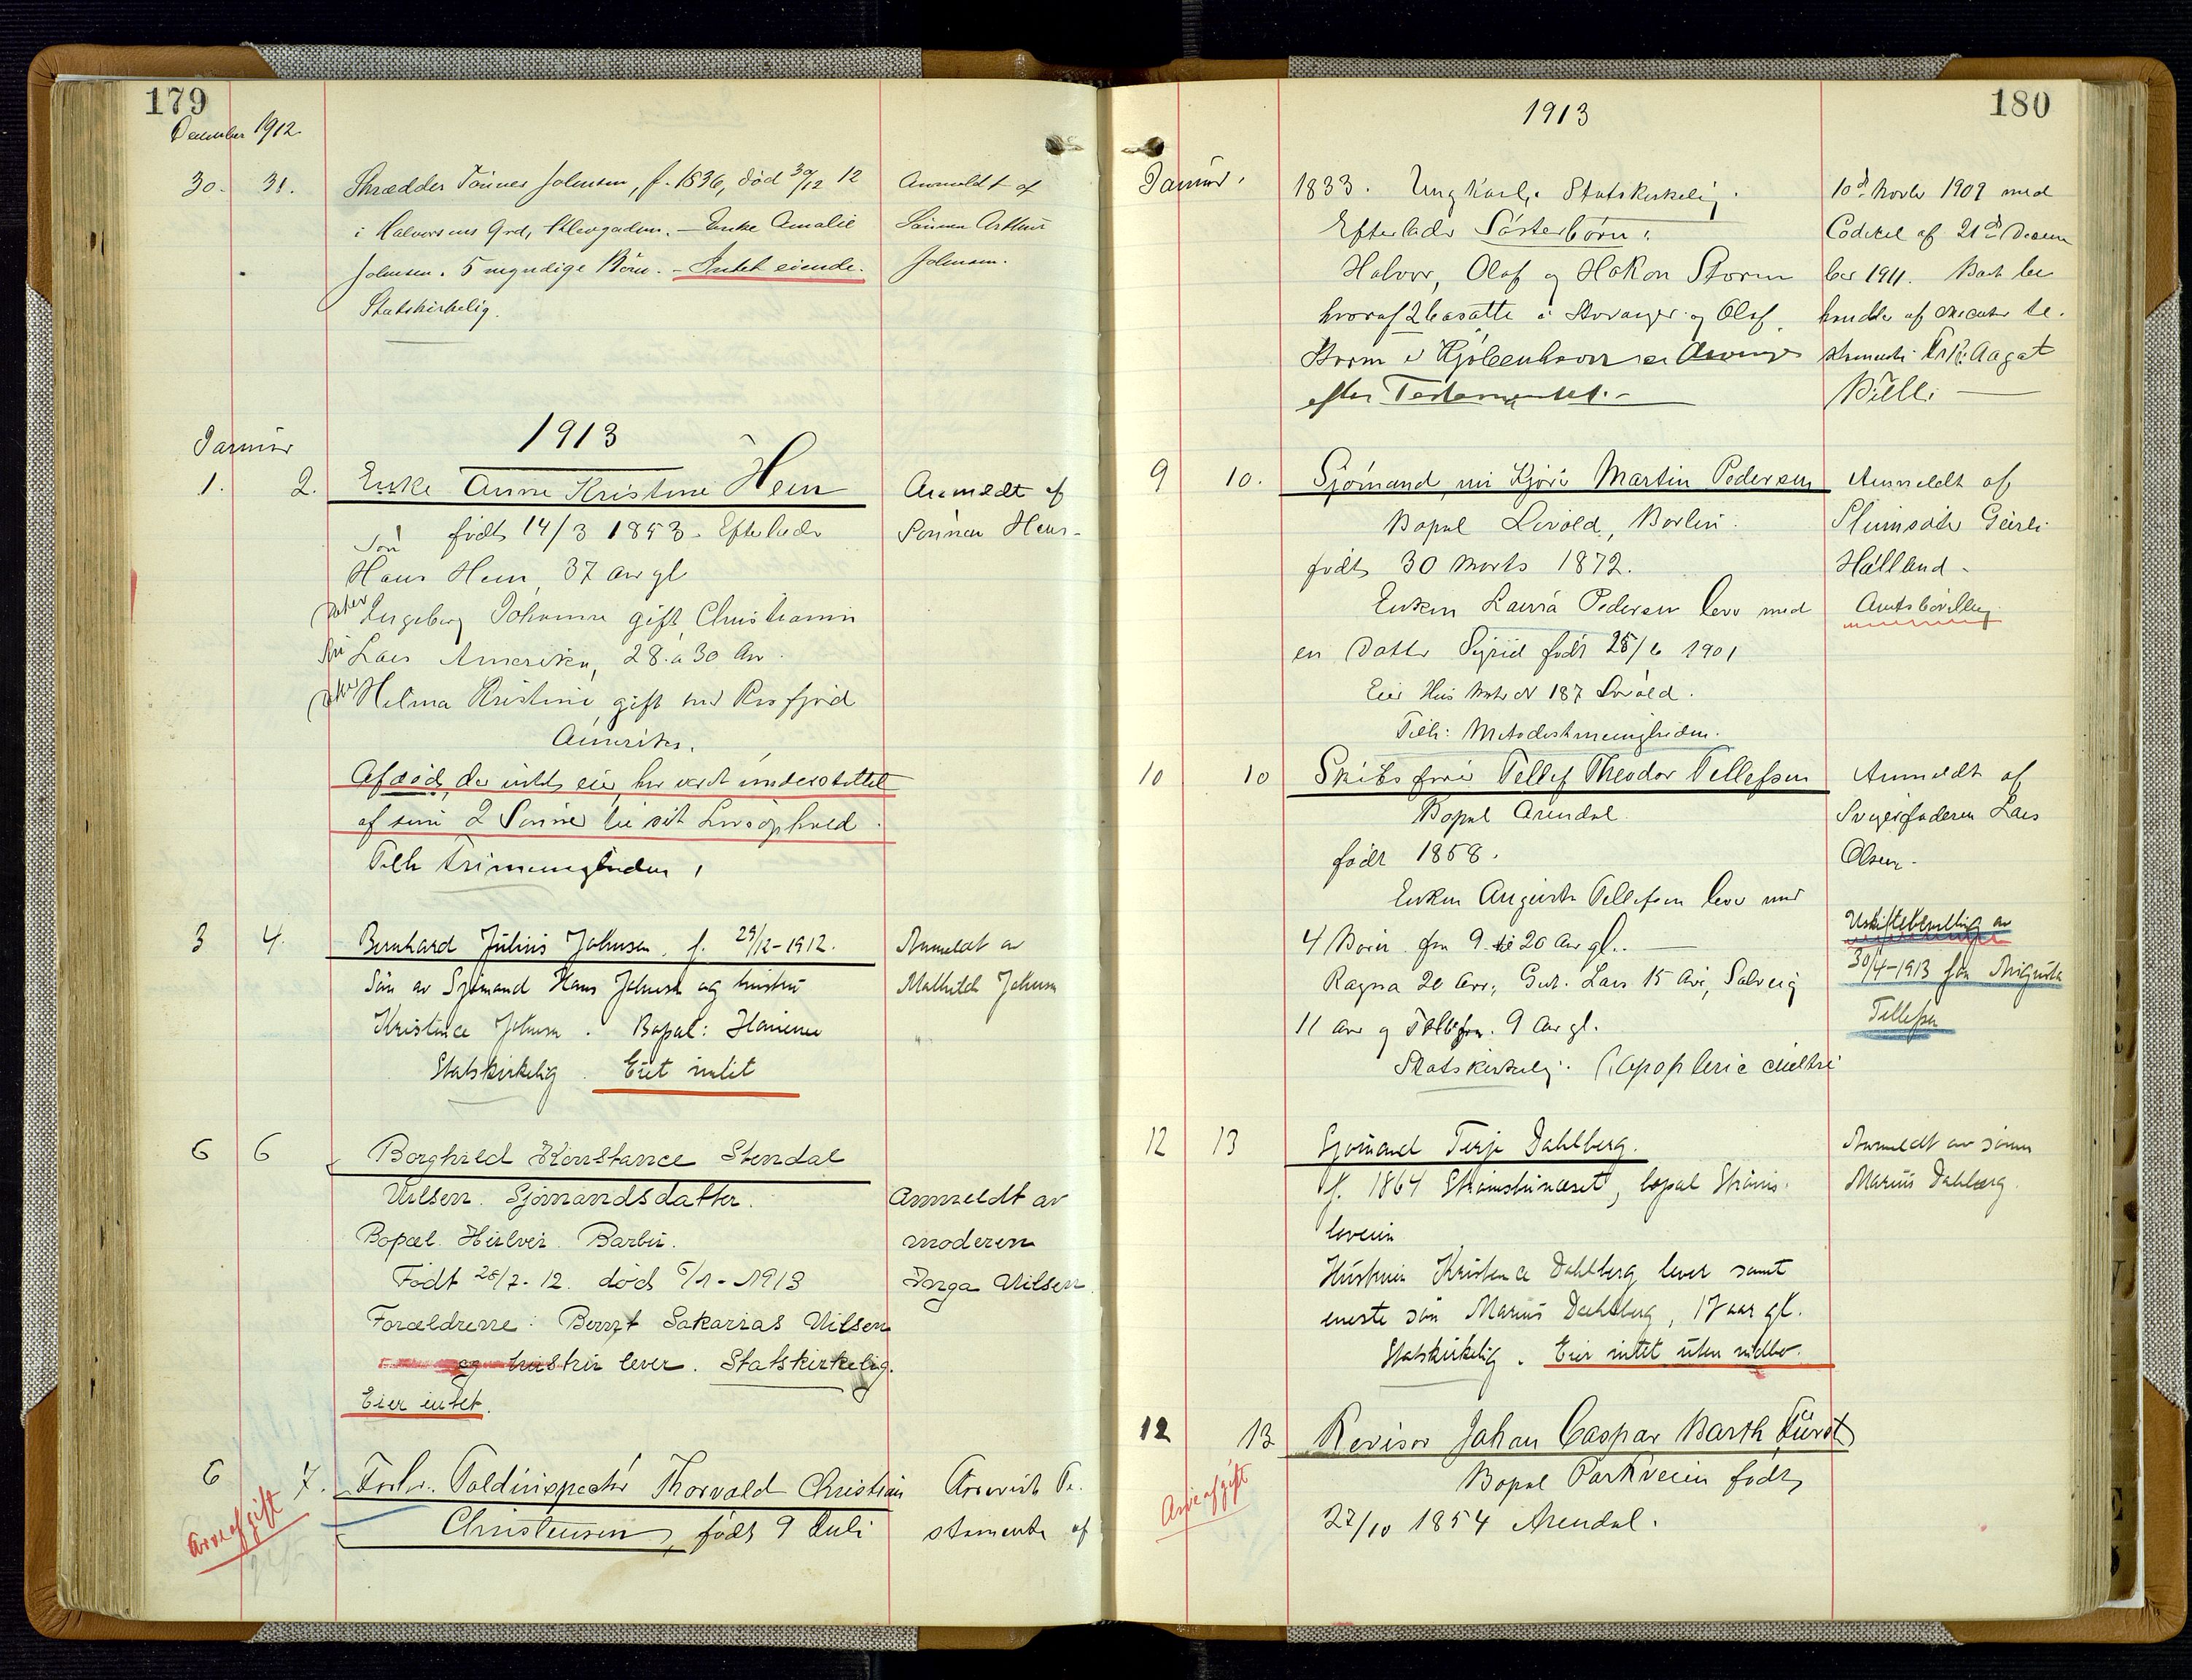 179
December 1912
30. 31. Skrædder Tønnes Johnsen, f. 1836, død 30/12 12
i Halvorsens Grd, . – Enke Amalie
Johnsen. 5 myndige Børn. – Intet eiende.
Statskirkelig.
Anmeldt af
Sønnen Arthur
Johnsen.
1913
Januar
1. 2. Enke Anne Kristine Hein
født 14/3 1853. Efterlader
Søn
Hans Hein, 37 Aar gl
Datter Ingeborg Johanne gift Christiania
Søn Lars Amerika, 28 a 30 Aar.
Datter Helma Kristine, gift med Rosfjord
Amerika.
Afdøde, der intet eier, har været understøttet
af sine 2 Sønner til sit Livsophold.
Tilh Frimenigheden,
Anmeldt af
Sønnen Hans –
3 4. Bernhard Julius Johnsen, f. 29/12-1912.
Søn av Sjømand Hans Johnsen og hustru
Kristence Johnsen. Bopæl: Havnen
Statskirkelig. Eiet intet
Anmeldt av
Mathilde Johnsen
6 6 Borghild Konstance Stendal
Nilsen. Sjømandsdatter.
Bopæl. Hisbvei. Barbu.
Født 28/7-12. død 5/1-1913
Forældrene: Bernt Sakarias Nilsen
og hustru lever. Statskirkelig.
Eier intet.
Anmeldt av
moderen
Inga Nilsen.
6 7. Forhv. Toldinspectør Thorvald Christian
Christensen, født 9 Juli
Arveafgift
Arvevist Te-
stamente af
180
1913
Januar.
1833. Ungkarl. Statskirkelig.
Efterlader Søsterbørn:
Halvor, Olaf og Hakon Storm
hvoraf 2 bosatte i Stavanger og Olaf
Storm i Kjøbenhavn er Arvinger
efter Testamentet. –
10d Novbr 1909 med
Codicil af 21d Decem
ber 1911. Boet be
handles af executor te-
stamenti O.r.Sk. Aagaat
Bille. —
9 10. Sjømand Martin Pedersen
Bopæl Livold, Barbu.
født 30 Marts 1872.
Enken Laura Pedersen lever med
en Datter Sigrid født 25/6 1901
Eier Hus Matr № 187 Livold.
Tilh: Metodistmenigheden.
Anmeldt af
Stuinsøster Geirli
Hålland –
Amtsbevilling
10 10 Skibsfører Tellef Theodor Tellefsen
Bopæl Arendal.
født 1858.
Enken Augusta Tellefsen lever med
4 Børn fra 9 til 20 Aar gl. —
Ragna 20 Aar, Lars 15 Aar, Solveig
11 Aar og Tellefsen. 9 Aar gl.
Statskirkelig. (Apoplexie
Anmeldt af
Svigerfaderen Lars
Olsen –
Uskiftebevilling av
30/4-1913 for Augusta
Tellefsen
12 13 Sjømand Terje Dahlberg.
f. 1864 Strømsbunæset, bopæl Strøms-
boveien
Hustruen Kristence Dahlberg lever samt
eneste søn Marius Dahlberg, 17 aar gl.
Statskirkelig. Eier intet uten indbo.
Anmeldt av sønn
Marius Dahlberg.
12 13 Revisor Johan Caspar Barth Fürst
Bopæl Parkveien født
27/10 1854 Arendal.
Arveafgift